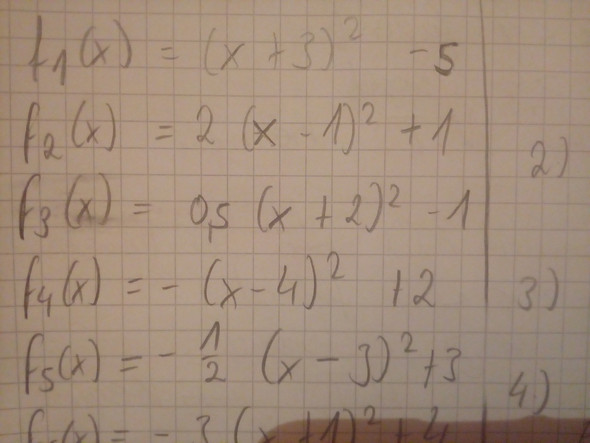 f₁(x) = (x + 3)² - 5
f₂(x) = 2 (x - 1)² + 1
2)
f₃(x) = 0,5 (x + 2)² - 1
f₄(x) = - (x - 4)² + 2
3)
f₅(x) = - 1/2 (x - 3)² + 3
4)
(x) = - 3 (x + 1)² + 4